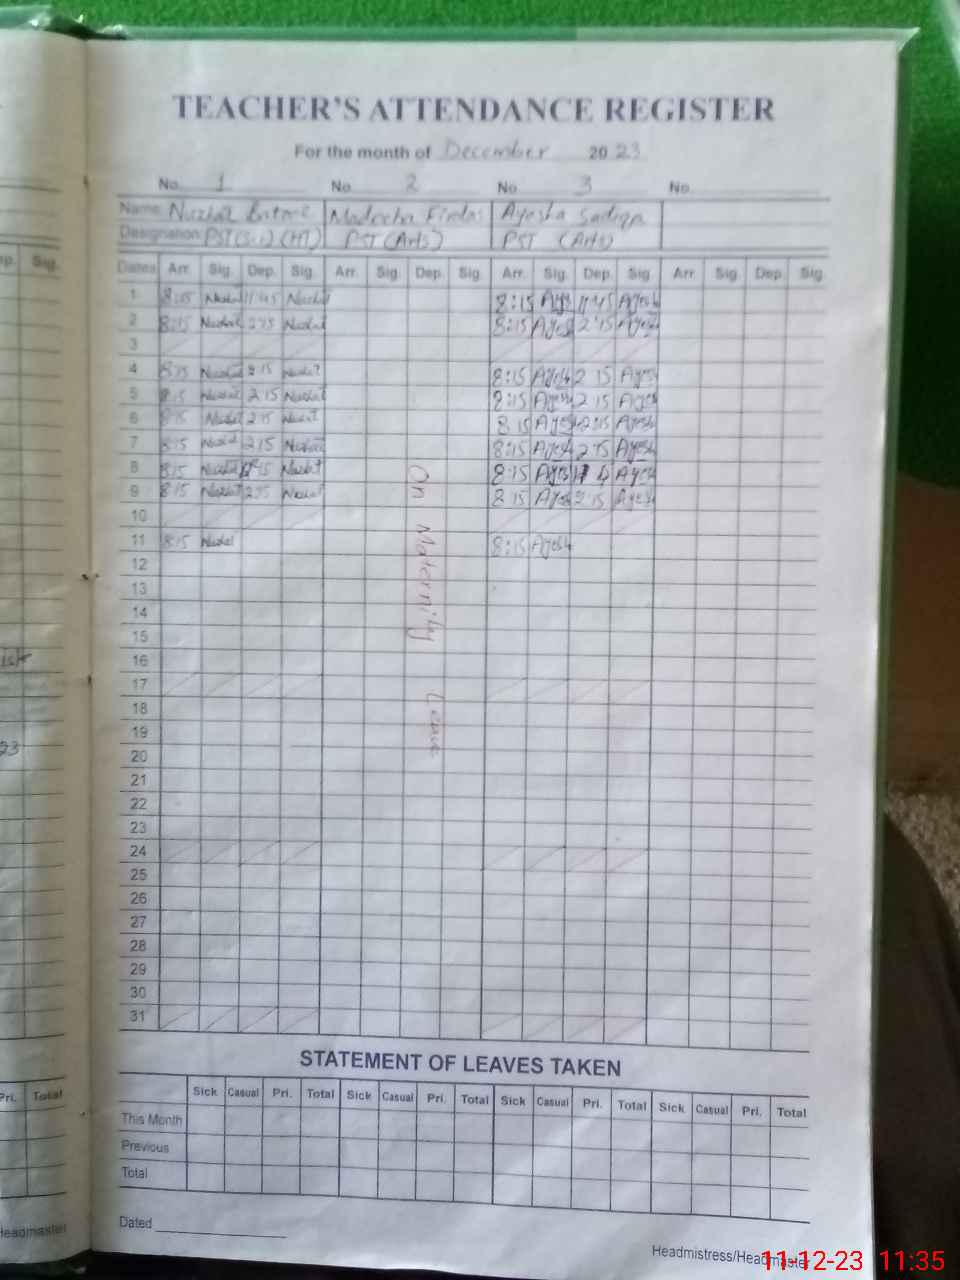 TEACHER'S ATTENDANCE REGISTER
For the month of December 2023
No. 1 No 2 No 3 No.
Name: Nuzhat Madeeha Firdos Ayesha Sadiqa
Designation: PST (Sci) (HT) PST (Arts) PST (Arts)
ep. Sig.
Dates Arr. Sig. Dep. Sig. Arr. Sig Dep. Sig. Arr. Sig. Dep. Sig Arr. Sig. Dep Sig.
1 8:15 Nuzhat 11:45 Nuzhat 8:15 Ayes 11:45 Ayesh
2 8:15 Nuzhat 2:15 Nuzhat 8:15 Ayes 2:15 Ayesh
3
4 8:15 Nuzhat 2:15 Nuzhat 8:15 Ayesh 2 15 Ayesh
5 8:15 Nuzhat 2:15 Nuzhat 8:15 Ayesh 2 15 Ayesh
6 8:15 Nuzhat 2:15 Nuzhat 8 15 Ayesh 2:15 Ayesh
7 8:15 Nuzhat 2:15 Nuzhat 8:15 Ayesh 2 15 Ayesh
8 8:15 Nuzhat Nuzhat 8:15 Ayes Ayesh
9 8:15 Nuzhat 2:15 Nuzhat 8 15 Ayes 2:15 Ayesh
10
11 8:15 Nuzhat 8:15 Ayesh
12
13
14
15
16
17
18
19
20
21
22
23
24
25
26
27
28
29
30
31
On Maternity Leave
23
STATEMENT OF LEAVES TAKEN
Pri. Total
Sick Casual Pri. Total Sick Casual Pri. Total Sick Casual Pri. Total Sick Casual Pri. Total
This Month
Previous
Total
Headmaster
Dated
Headmistress/Headmaster
11-12-23 11:35